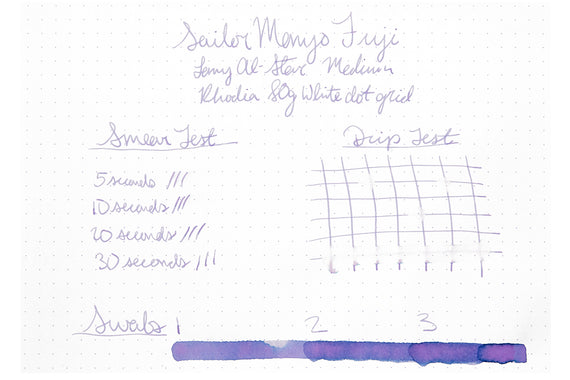 Sailor Manyo Fuji
Lamy Al-Star Medium
Rhodia 80g White dot grid
Smear Test
Drip Test
5 seconds ///
10 seconds ///
20 seconds ///
30 seconds ///
Swabs 1 2 3